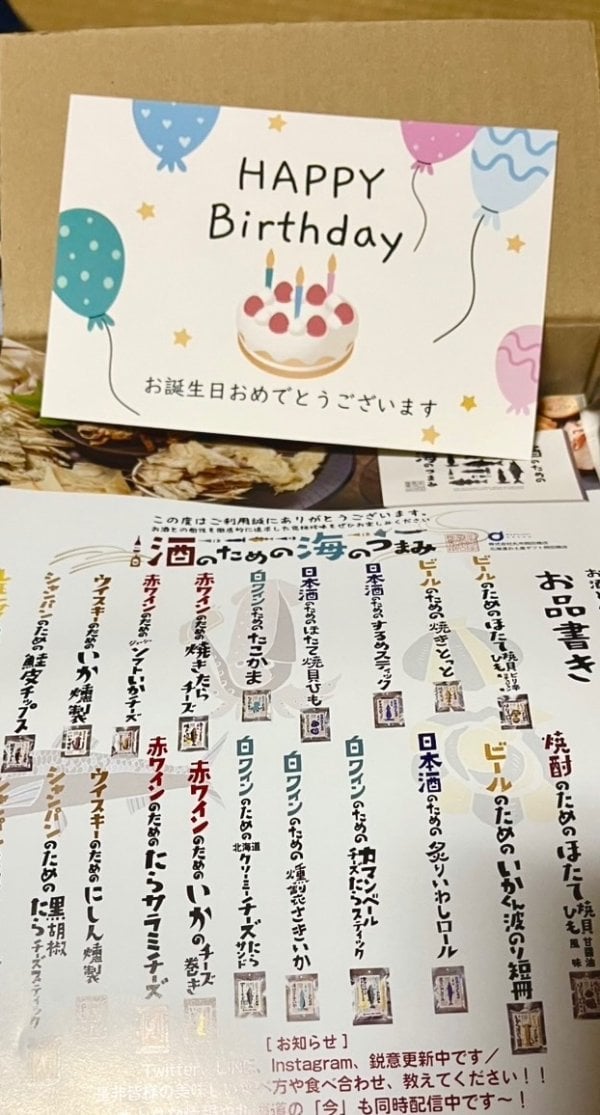 HAPPY
Birthday
お誕生日おめでとうございます
この度はご利用誠にありがとうございます。
酒のための海のうまみ
お品書き
ビールのためのほたて焼貝ひも
ビールのための焼きとっと
日本酒のためのするめスティック
日本酒のためのほたて焼貝ひも
白ワインのためのたこかま
赤ワインのための焼きたらチーズ
赤ワインのためのソフトいかチーズ
ウイスキーのためのいか燻製
シャンパンのための鮭皮チップス
焼酎のためのほたて焼貝ひも甘醤油風味
ビールのためのいかくん波のり短冊
日本酒のための炙りいわしロール
白ワインのためのカマンベールチーズたらスティック
白ワインのための燻製さきいか
白ワインのための北海道クリーミーチーズたらサンド
赤ワインのためのいかのチーズ巻き
赤ワインのためのたらサラミチーズ
ウイスキーのためのにしん燻製
シャンパンのための黒胡椒たらチーズスティック
[お知らせ]
Twitter、Instagram、鋭意更新中です／
方や食べ合わせ、教えてください！！
の「今」も同時配信中です～！